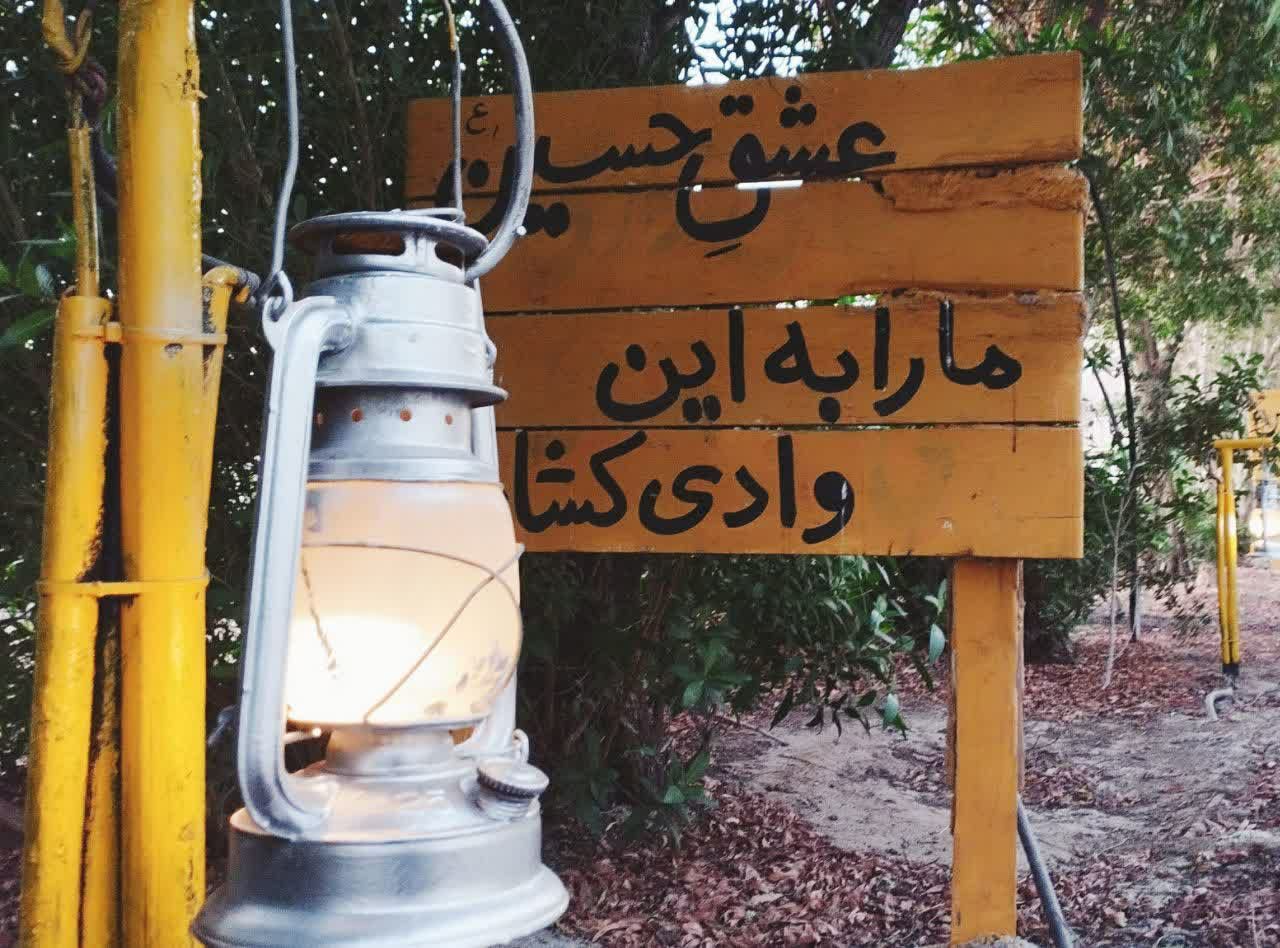 عشقِ حسین ع
ما را به این
وادی کشا